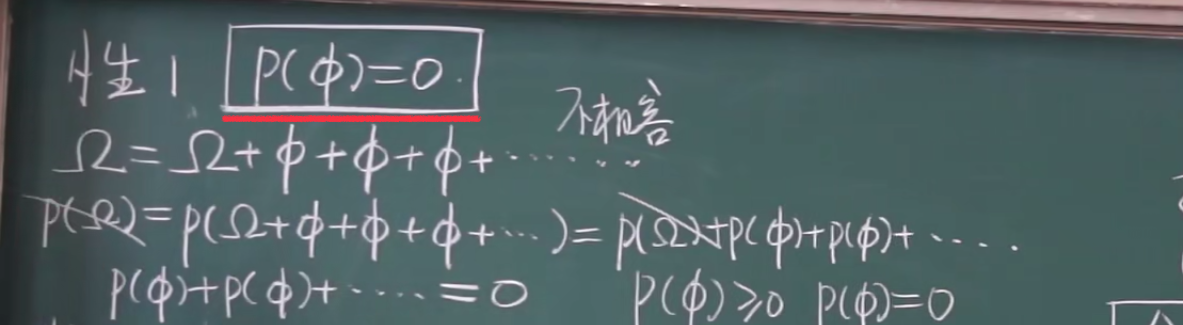 性1 P(ϕ)=0.
不相容
Ω=Ω+ϕ+ϕ+ϕ+……
P(Ω)=P(Ω+ϕ+ϕ+ϕ+…)=P(Ω)+P(ϕ)+P(ϕ)+…..
P(ϕ)+P(ϕ)+……=0 P(ϕ)≥0 P(ϕ)=0